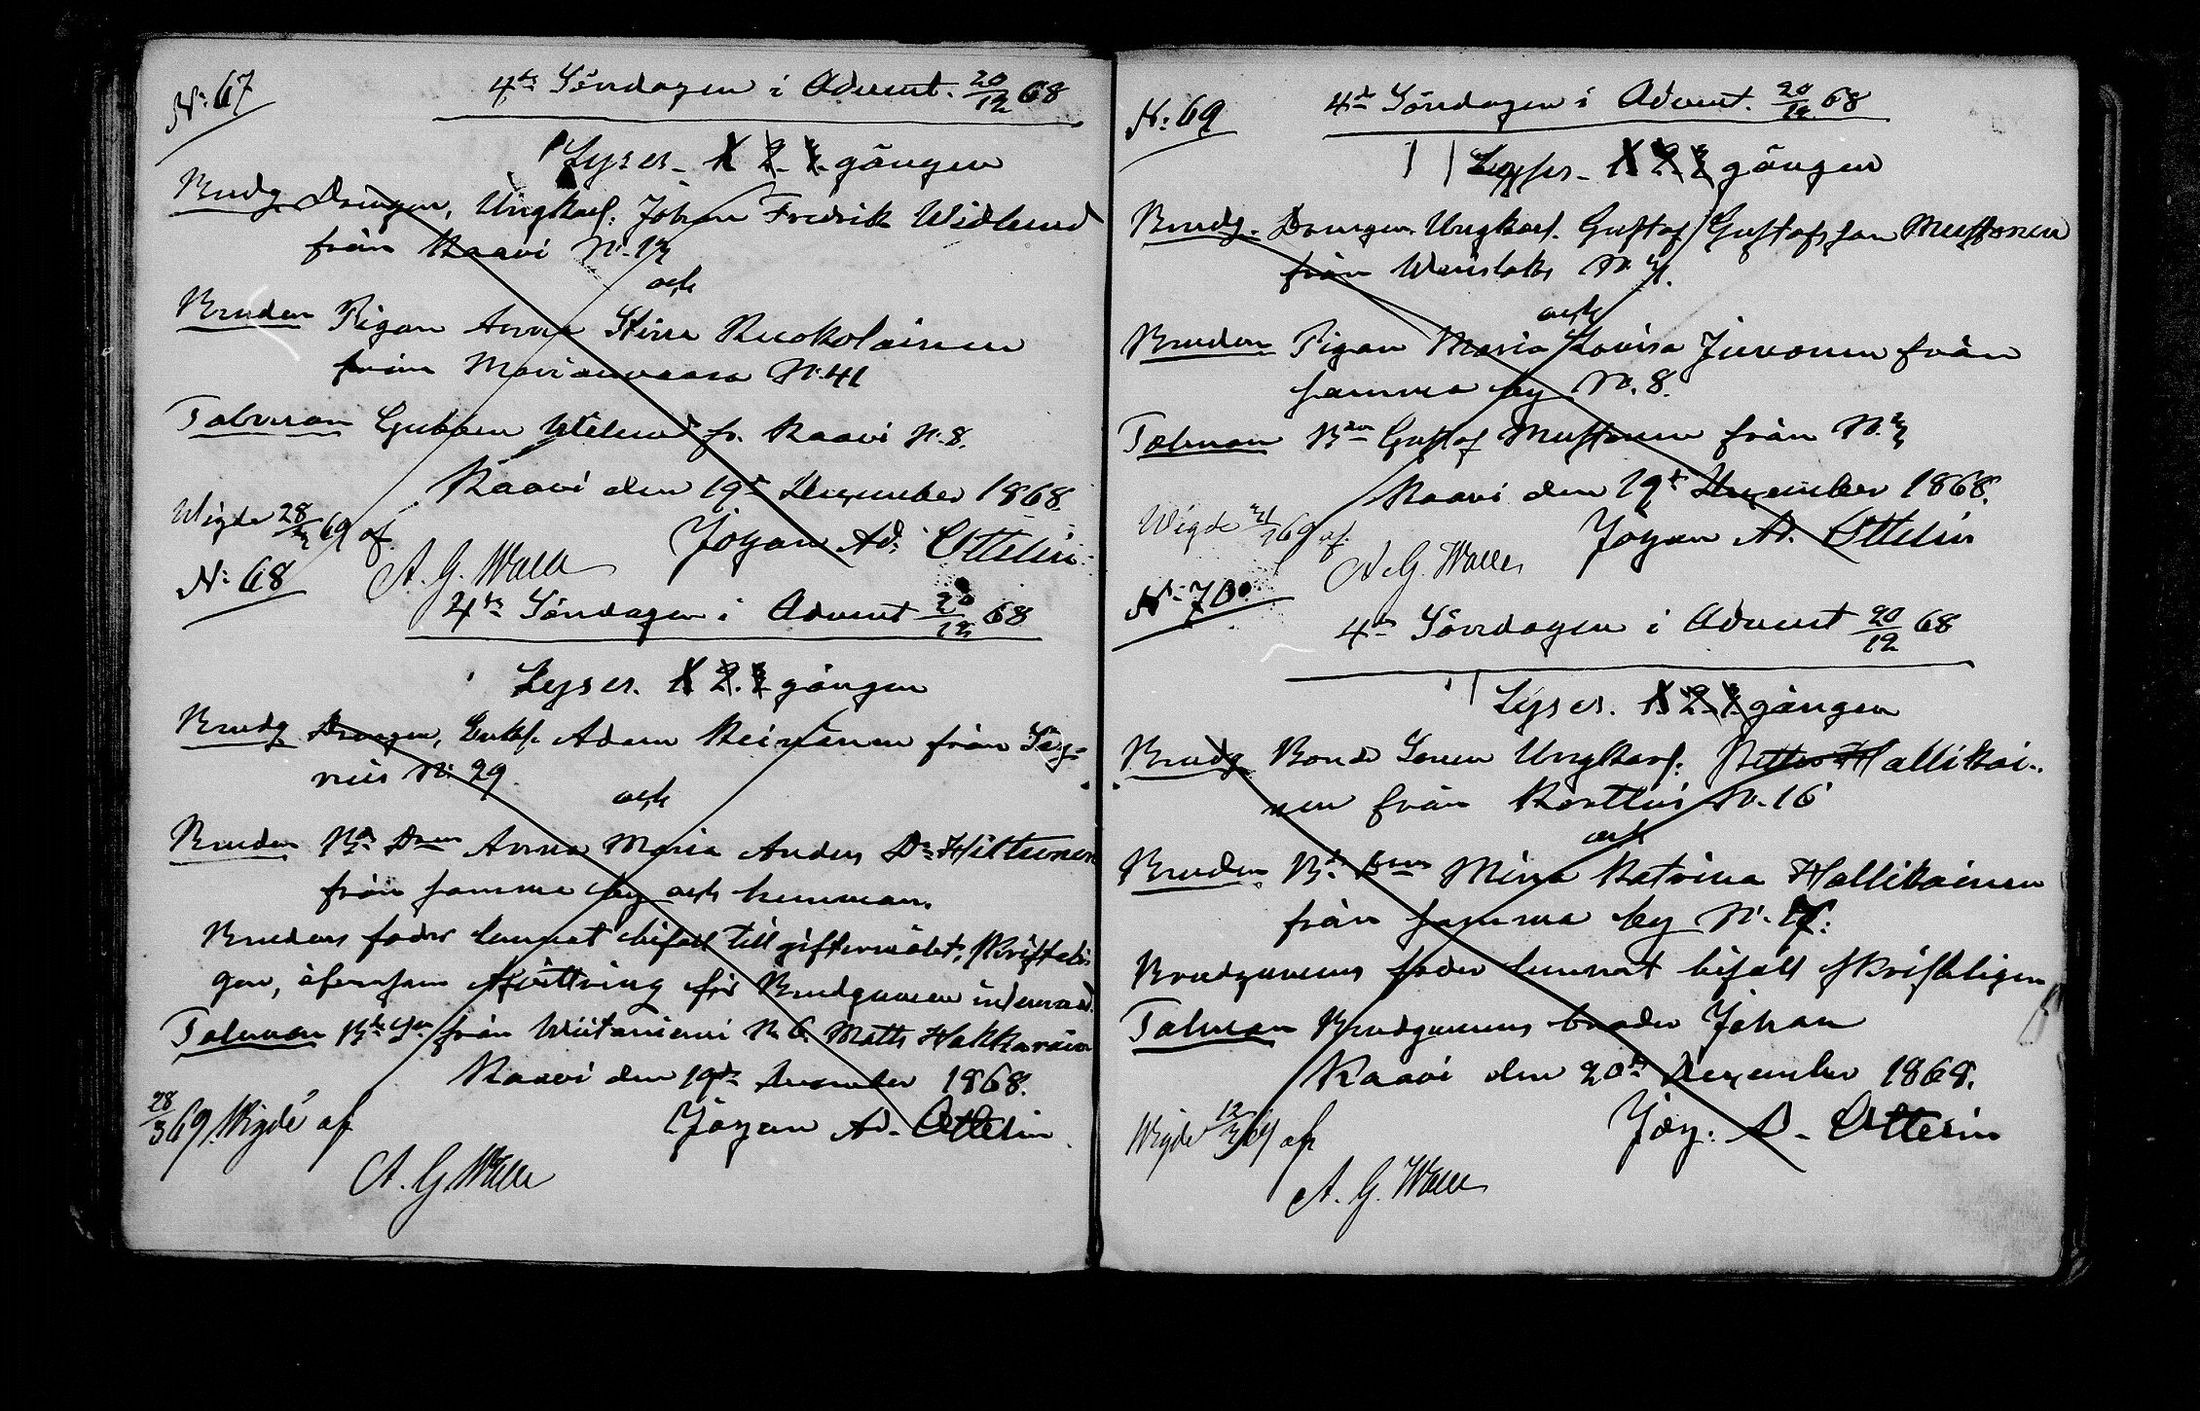 N: 67
4de Söndagen i Advent. 20/12 68
Lyses. 1 2. 3. gången
Brudg. Drängen, Ungkarl. Johan Fredrik Widlund
från Kaavi N. 12
och
Bruden Pigan Anna Stina Ruokolainen
från Marianvaara N. 41
Talman Gubben Widlund fr. Kaavi N. 8.
Kaavi den 19de December 1868.
Johan Ad. Ottelin
Wigde 28/ 69 af
A. G. Walle
N: 68
4de Söndagen i Advent 20/12 68
Lyses. 1 2. 3 gången
Brudg Drängen, Enkl. Adam Keinänen från
N: 29
och
Bruden Bde Dren Anna Maria Anders Dr Hiltunen
från samma by och hemman.
Brudens fader lemnat bifall till giftermålet, skrifteli-
gen, äfvensom för Brudgummen
Talman Bde Sn från Wiitaniemi N. 6. Matts Hakkarain
Kaavi den 19de December 1868.
Johan Ad. Ottelin
28/3 69 Wigde af
A. G. Walle
N: 69
4de Söndagen i Advent. 20/12 68
Lyses. 1 2 3 gången
Brudg. Drängen Ungkarl. Gustaf Gustafsson Mustonen
från N.
och
Bruden Pigan Maria Lovisa Juvonen från
samma by N. 8.
Talman Bden Gustaf Mustonen från N.
Kaavi den 19de December 1868.
Johan A. Ottelin
Wigde 69 af
A. G. Walle
N: 70
4de Söndagen i Advent 20/12 68
Lyses. 1 2. 3. gången
Brudg Bonde Sonen Ungkarl: Petter Hallikai-
nen från Kortteis N. 16
och
Bruden Bde Dren Mina Katrina Hallikainen
från samma by N.
Brudgummens fader lemnat bifall skriftligen
Talman Brudgummens broder Johan
Kaavi den 20de December 1868.
Joh. A. Ottelin
Wigde af
A. G. Walle